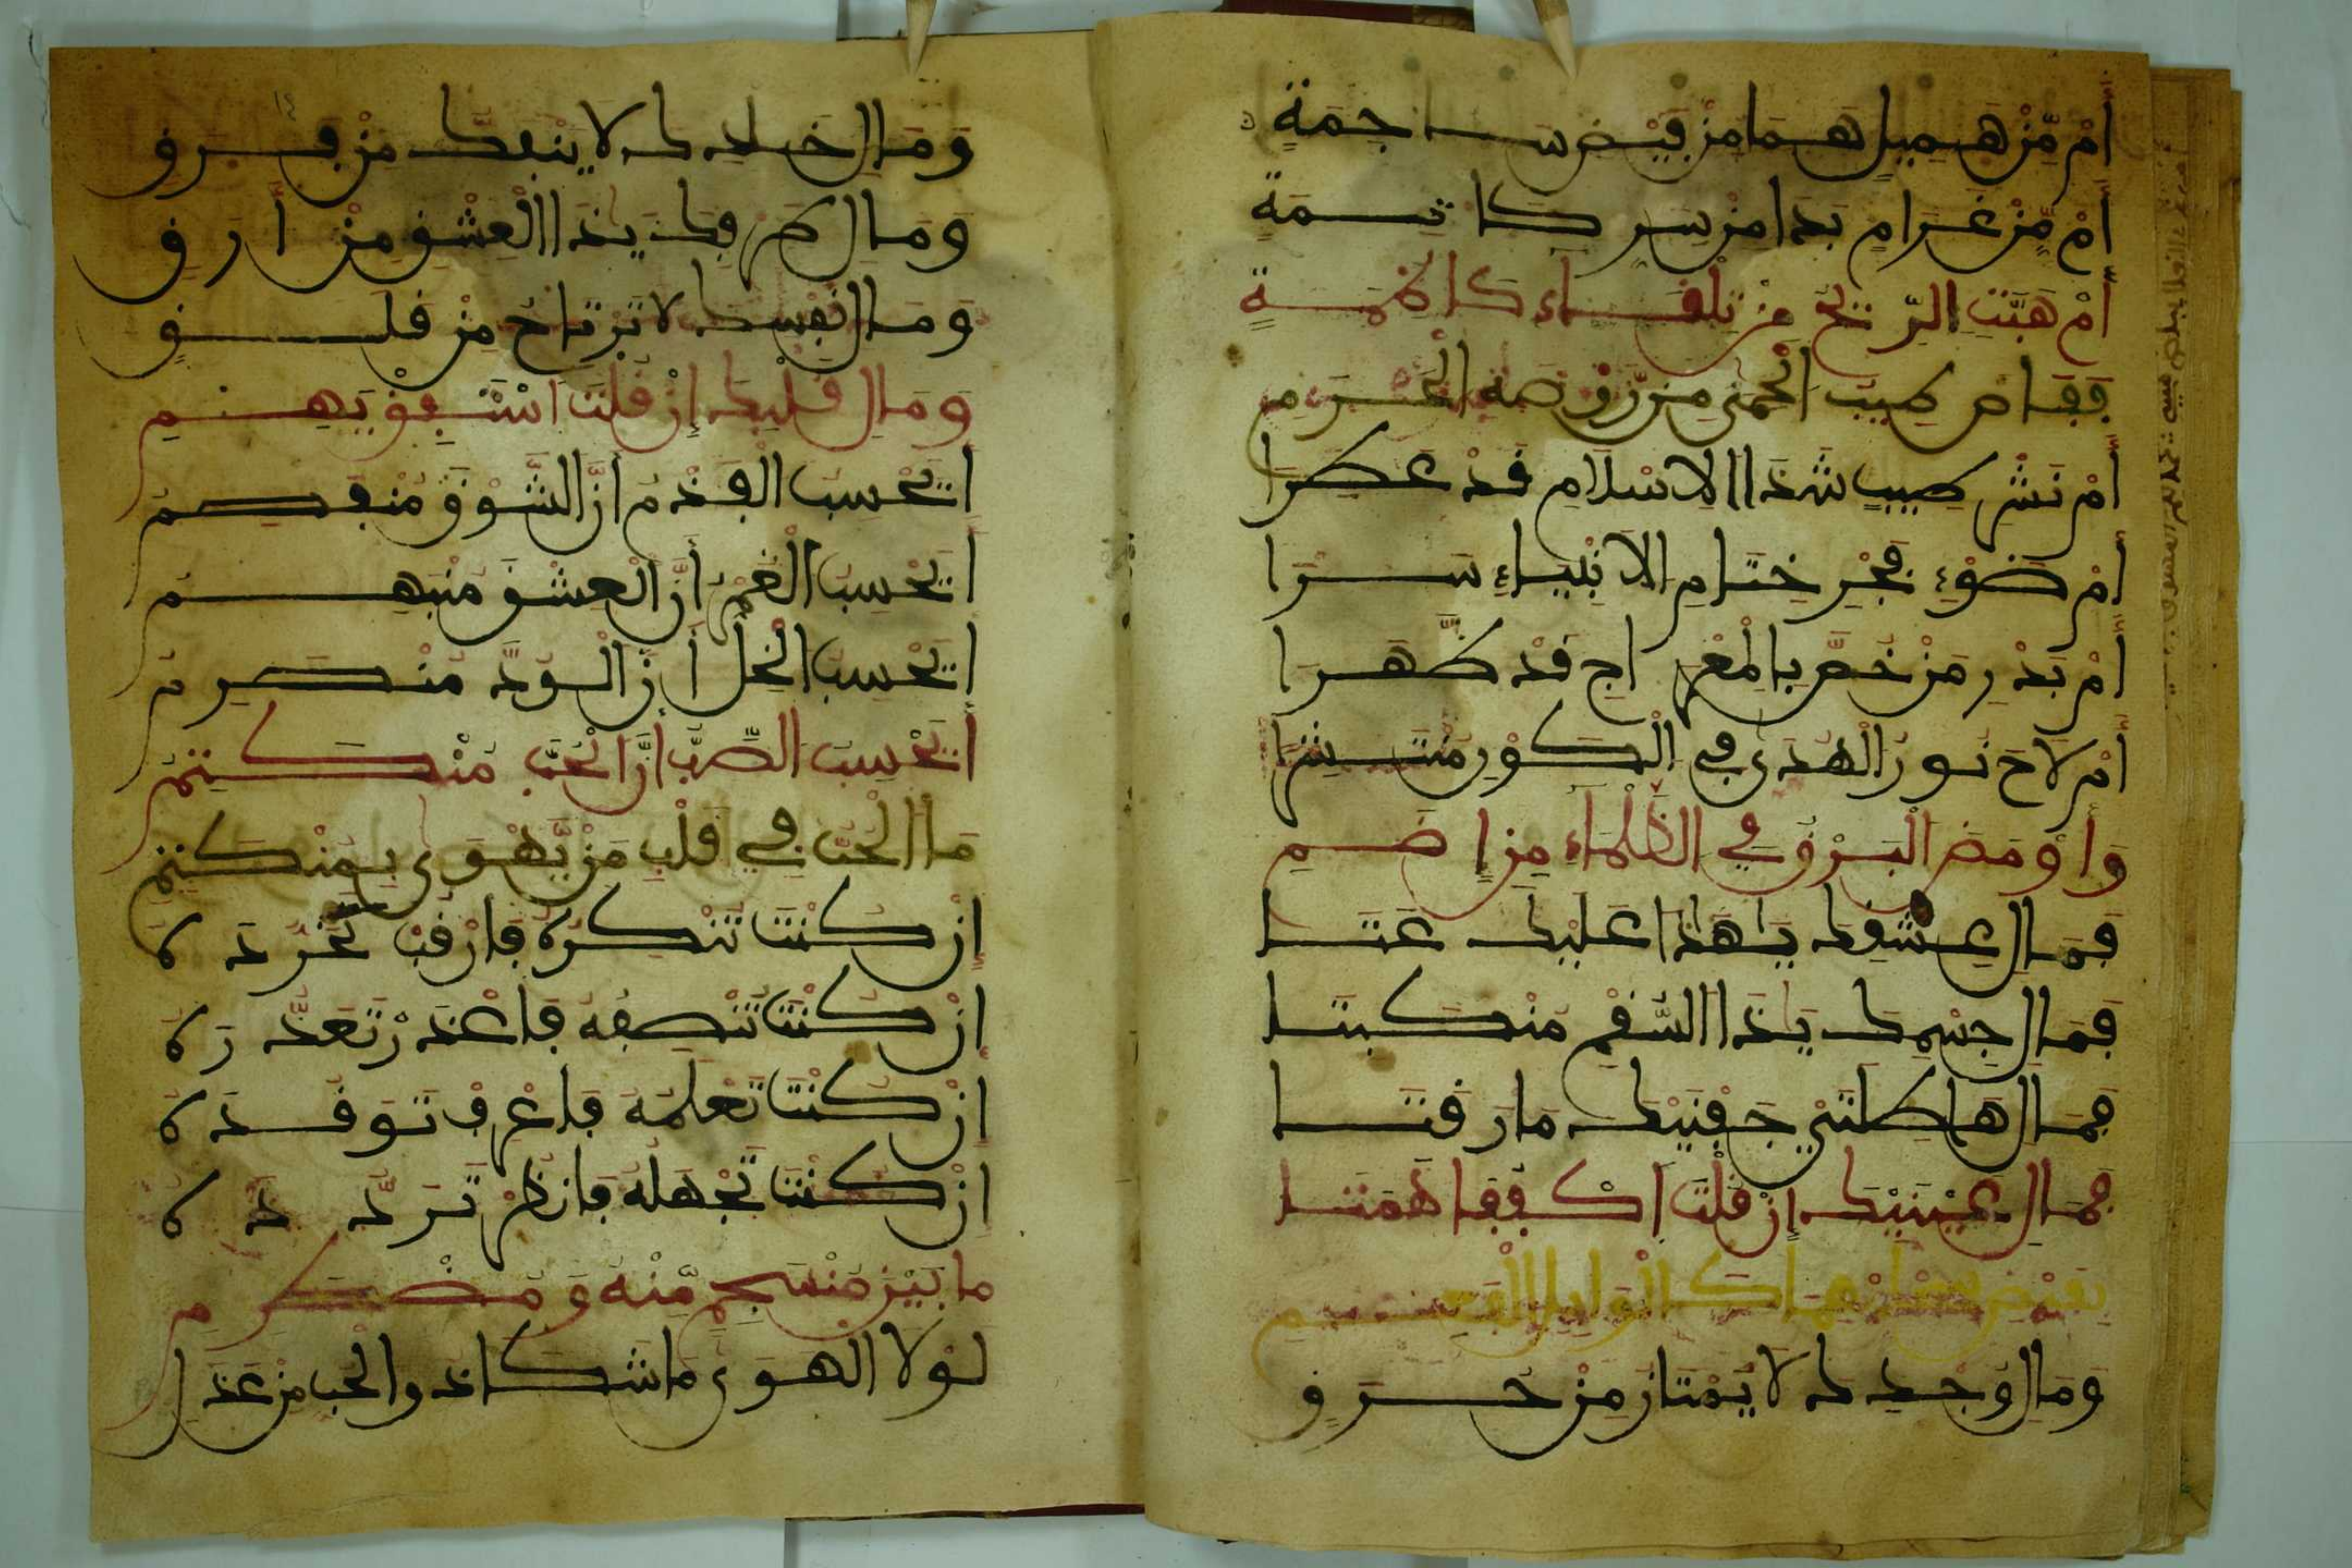 أَمْ مِّنْ هَمِيلٍ هَمَا مِنْ فَيْضِ سَاجِمَةٍ
أَمْ مِّنْ غَرَامٍ بَدَا مِنْ سِرِّ كَاتِمَةٍ
أَمْ هَبَّتِ الرِّيحُ مِنْ تِلْقَاءِ كَاظِمَةٍ
فَفَاحَ طِيبُ الْحِمَى مِن رَّوْضَةِ الْحَرَمِ
أَمْ نَشْرُ طِيبٍ شَذَا الْإِسْلَامِ قَدْ عَطِرَا
أَمْ ضَوْءُ فَجْرِ خِتَامِ الْأَنْبِيَاءِ سَرَا
أَمْ بَدْرُ مَنْ خُصَّ بِالْمِعْرَاجِ قَدْ ظَهَرَا
أَمْ لَاحَ نُورُ الْهُدَى فِي الْكَوْنِ مُنْتَشِرًا
وَأَوْمَضَ الْبَرْقُ فِي الظَّلْمَاءِ مِنْ إِضَمِ
فَمَا لِعِشْقِكَ يَا هَذَا عَلَيْكَ عَتَا
فَمَا لِجِسْمِكَ يَا ذَا السُّقْمِ مُنْكَبِتَا
فَمَا لِهَاطِلَتَيْ جَفْنَيْكَ مَا رَقَتَا
فَمَا لِعَيْنَيْكَ إِنْ قُلْتَ اكْفُفَا هَمَتَا
وَمَا لِوَجْدِكَ لَا يَمْتَازُ مِنْ حَرَقٍ
وَمَا لِخَلَدِكَ لَا يَنْفَكُّ مِنْ فَرَقٍ
وَمَا لِطَرْفِكَ يَا ذَا الْعِشْقِ مِنْ أَرَقٍ
وَمَا لِنَفْسِكَ لَا تَرْتَاحُ مِنْ قَلَقٍ
وَمَا لِقَلْبِكَ إِنْ قُلْتَ اسْتَفِقْ يَهِمِ
أَتَحْسِبُ الْفَدْمُ أَنَّ الشَّوْقَ مُنْفَصِمٌ
أَيَحْسِبُ الْغَمْرُ أَنَّ الْعِشْقَ مُنْبَهِمٌ
أَيَحْسِبُ الْخِلُّ أَنَّ الْوُدَّ مُنْصَرِمٌ
أَيَحْسِبُ الصَّبُّ أَنَّ الْحُبَّ مُنْكَتِمٌ
مَا الْحُبُّ فِي قَلْبِ مَنْ يَّهْوَى بِمُنْكَتِمِ
إِنْ كُنْتَ تُنْكِرُهُ فَارْقُبْ تَجَرُّدَهُ
إِنْ كُنْتَ تُنْصِفُهُ فَاعْذُرْ تَعَذُّرَهُ
إِنْ كُنْتَ تَعْلَمُهُ فَاعْرِفْ تَوَقُّدَهُ
إِنْ كُنْتَ تَجْهَلُهُ فَانْظُرْ تَرَدُّدَهُ
مَا بَيْنَ مُنْسَجِمٍ مِّنْهُ وَمُضْطَرِمِ
لَوْلَا الْهَوَى مَا شَكَا وَالْحُبُّ مِنْ عَذَلٍ